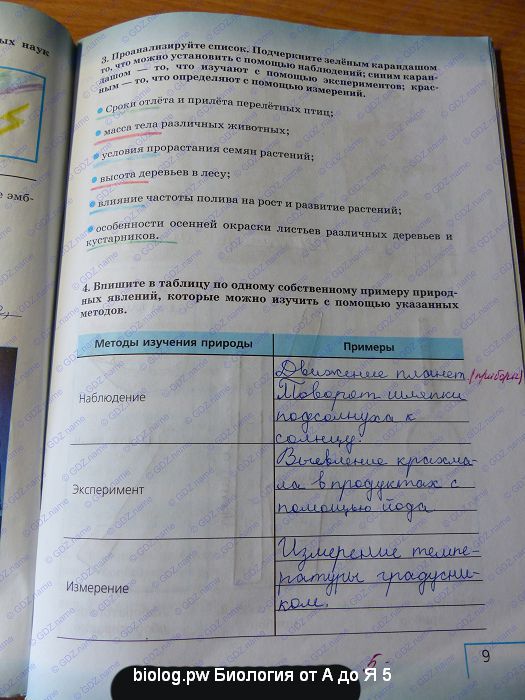 ых наук
е эмб-
3. Проанализируйте список. Подчеркните зелёным карандашом
то, что можно установить с помощью наблюдений; синим каран-
дашом — то, что изучают с помощью экспериментов; крас-
ным — то, что определяют с помощью измерений.
• Сроки отлёта и прилёта перелётных птиц;
• масса тела различных животных;
• условия прорастания семян растений;
• высота деревьев в лесу;
• влияние частоты полива на рост и развитие растений;
• особенности осенней окраски листьев различных деревьев и
кустарников.
4. Впишите в таблицу по одному собственному примеру природ-
ных явлений, которые можно изучить с помощью указанных
методов.
Методы изучения природы
Примеры
Наблюдение
Движение планет (приборы)
Поворот шляпки
подсолнуха к
солнцу.
Эксперимент
Выевление крахма-
ла в продуктах с
помощью йода
Измерение
Измерение темпе-
ратуры градусни-
ком.
5-
9
© GDZ.name
biolog.pw Биология от А до Я 5